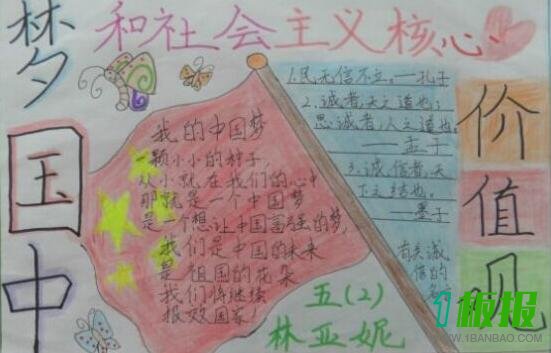 中国梦
和社会主义核心
价值观
我的中国梦
一颗小小的种子,
从小就在我们的心中
那就是一个中国梦
是一个想让中国富强的梦,
我们是中国的未来
是祖国的花朵
我们将继续
报效国家!
1.民无信不立,——孔子
2.诚者,天之道也;
思诚者,人之道也。
——孟子
3.诚信者,天
下之结也,
——墨子
有关诚
信的
五(2)
林亚妮
1板报
WWW.1BANBAO.COM